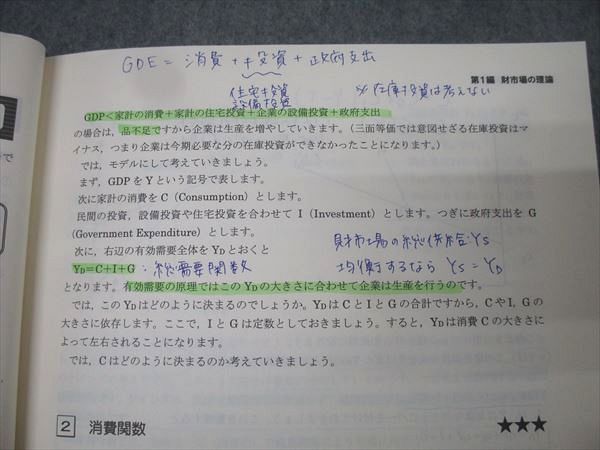 GDE = 消費 + 投資 + 政府支出
第1編　財市場の理論
住宅投資
設備投資
※在庫投資は考えない
GDP＜家計の消費＋家計の住宅投資＋企業の設備投資＋政府支出
の場合は，品不足ですから企業は生産を増やしていきます。（三面等価では意図せざる在庫投資はマ
イナス，つまり企業は今期必要な分の在庫投資ができなかったことになります。）
では，モデルにして考えていきましょう。
まず，GDPをYという記号で表します。
次に家計の消費をC（Consumption）とします。
民間の投資，設備投資や住宅投資を合わせてI（Investment）とします。つぎに政府支出をG
（Government Expenditure）とします。
次に，右辺の有効需要全体をYDとおくと
財市場の総供給:YS
YD=C+I+G
:総需要関数
均衡するなら YS = YD
となります。有効需要の原理ではこのYDの大きさに合わせて企業は生産を行うのです。
では，このYDはどのように決まるのでしょうか。YDはCとIとGの合計ですから，CやI，Gの
大きさに依存します。ここで，IとGは定数としておきましょう。すると，YDは消費Cの大きさに
よって左右されることになります。
では，Cはどのように決まるのか考えていきましょう。
2　消費関数　★★★